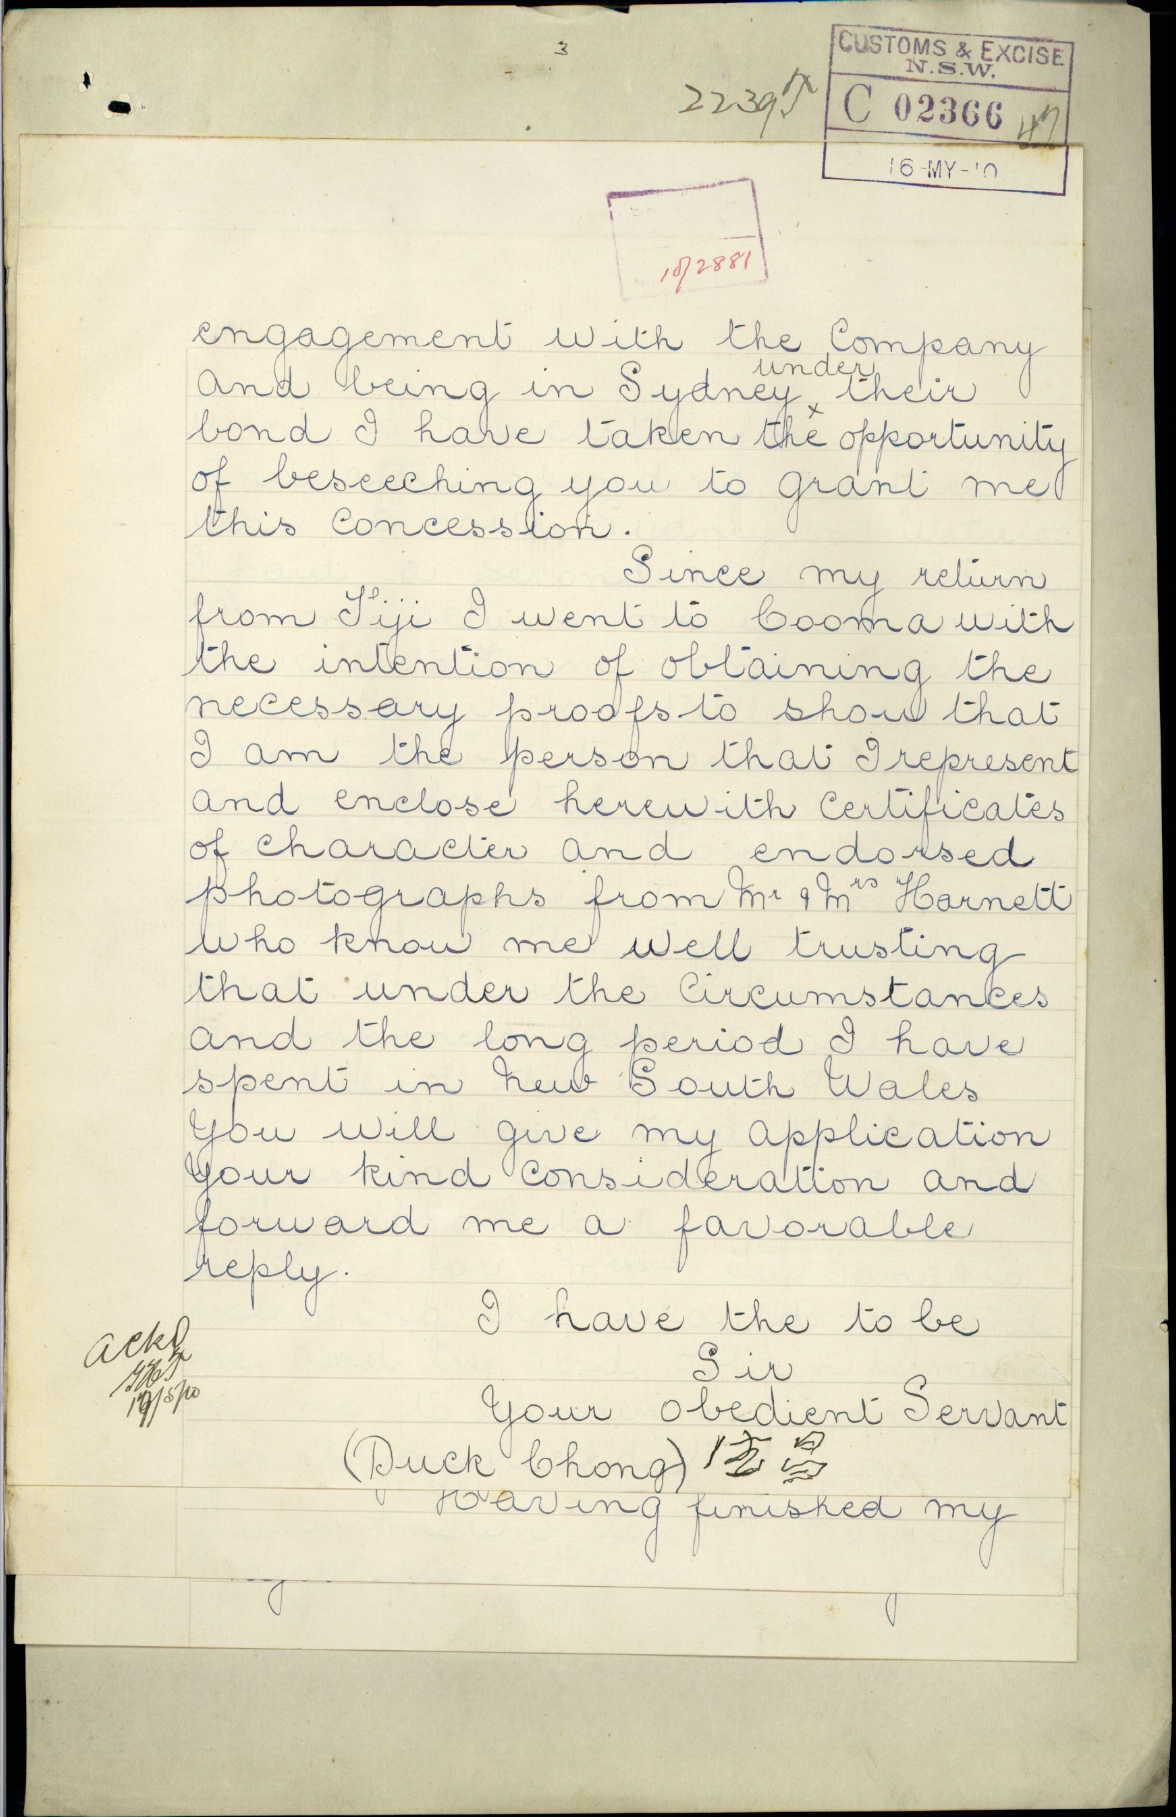 3
CUSTOMS & EXCISE
N.S.W.
C 02366
16-MY-10
10/2881
engagement with the Company
and being in Sydney under their
bond I have taken the opportunity
of beseeching you to grant me
this concession.
Since my return
from Fiji I went to Cooma with
the intention of obtaining the
necessary proofs to show that
I am the person that I represent
and enclose herewith Certificates
of character and endorsed
photographs from Mr & Mrs Harnett
who know me well trusting
that under the Circumstances
and the long period I have
spent in New South Wales
you will give my application
your kind consideration and
forward me a favorable
reply.
I have the to be
Sir
Your obedient Servant
(Duck Chong)
Having finished my
Ackd
19/5/10